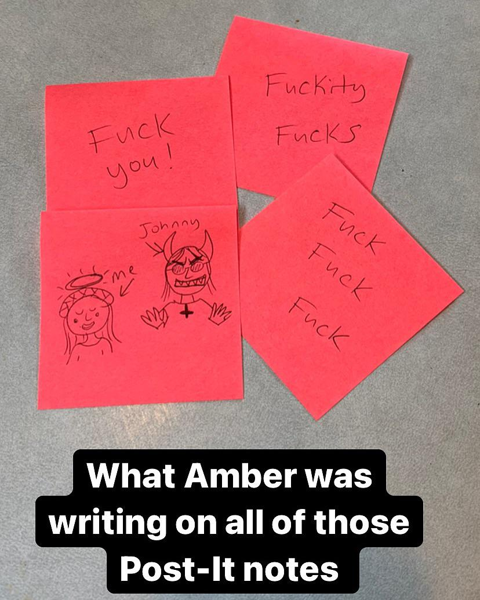 Fuckity
Fucks
Fuck
you!
Johnny
me
Fuck
Fuck
Fuck
What Amber was
writing on all of those
Post-It notes